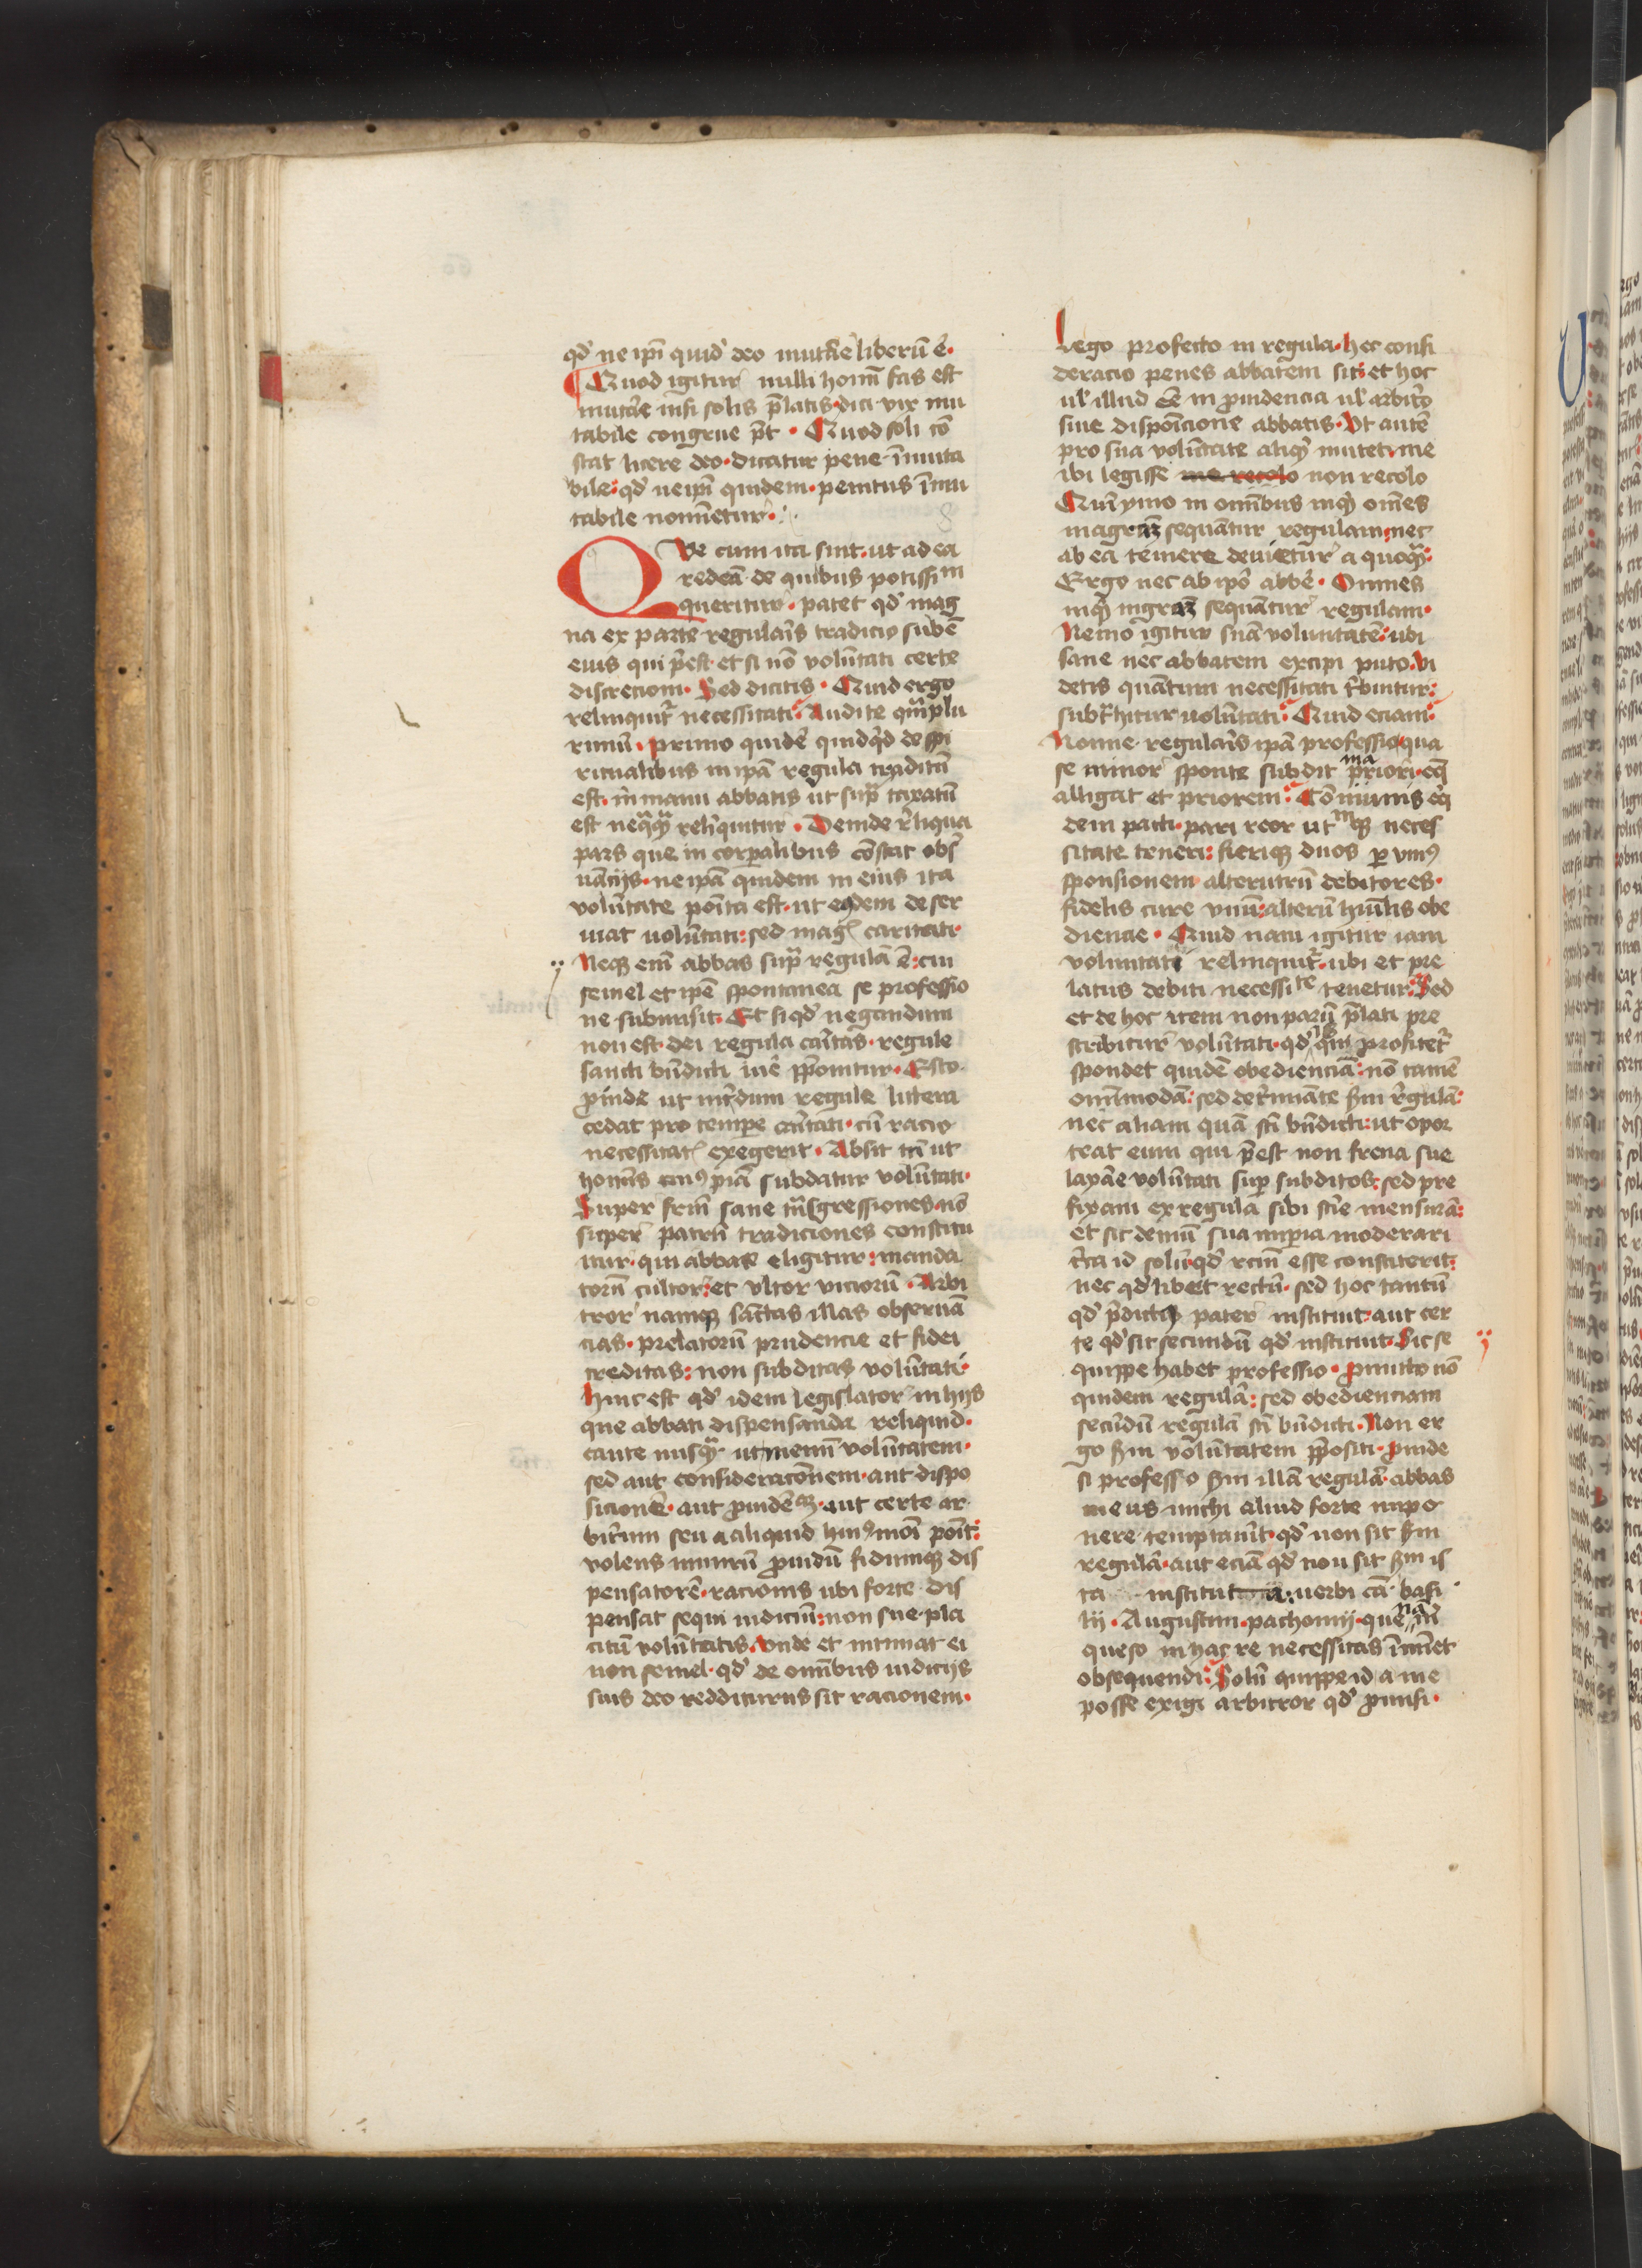 qd̓ ne ip̄i quid̓ deo mutar̄e liberū ē·
Quod igitur nulli hoīm fas est
mutar̄e nisi solis p̄latis· dici vix mu
tabile congrue p̄t · Quod soli cō
stat licere deo· dicatur pene īmuta
bile: qd̓ ne ip̄i quidem· penitus īmu
tabile nomīetur·
Que cum ita sint· ut ad ea
redeā· de quibus potissīm
queritur· patet qd̓ mag
na ex parte regular̄is tradicio subē
eius qui p̄est· et si nō volūtati certe
discrecioni· Sed dicitis · Quid ergo
relinquit̓ necessitati: Audite qm̄ plu
rimū· primo quidē quidq̄d de spi
ritualibus in ip̄a regula traditū
est· in manu abbatis ut sup̄ taxatū
est neq̄q̄ relīquitur· Deinde r̄liqua
pars que in corp̄alibus cōstat obs̄
uāciis· ne ip̄a quidem in eius ita
volūtate posita est· ut eidem deser
uiat volūtati: sed mag̓ caritati·
Neq̄ eīm abbas sup̄ regulā ē: cui
semel et ip̄e spontanea se professio
ne submisit· Et si qd̓ negandum
non est· dei regula car̄itas· regule
sancti bn̄dicti iur̄e p̄ponitur· Esto·
p̄inde ut int̄dum regule littera
cedat pro tempe car̄itati· cū racio
necessitat̓ exegerit· Absit tn̄ ut
homīs cui9piā subdatur volūtati·
Super frm̄ sane trāsgressiones· nō
super patrū tradiciones constitu
itur· qui abbas eligitur: manda
torū cultor: et vltor viciorū· Arbi
tror namq̄ sāctas illas obseruā
cias· prelatorū prudencie et fidei
creditas: non subditas volūtati·
hinc est qd̓ idem legislator in hijs
que abbati dispensanda reliquid·
caute nusq̄ ut memī volūtatem·
sed aut consideracōnem· aut dispo
sicionē· aut p̄uidēciā· aut certe ar
bitrium seu aliquid hui9modi poīt:
volens nimirū p̄uidū fidumq̄ dis
pensatorē· racionis ubi forte dis
pensat sequi iudiciū: non sue pla
citū volūtatis· Vnde et intimat ei
non semel· qd̓ de omībus iudicijs
suis deo redditurus sit racionem·
Lego profecto in regula· hec consi
deracio penes abbatem sit: et hoc
ul̓ illud ēē in p̄uidencia ul̓ arbitr̄o
siue disposīcione abbatis· Vt autē
pro sua volūtate aliq̓d mutet: me
ibi legisse me recolo non recolo
Quīymo in omībus inq̓t omēs
magram sequātur regulam: nec
ab ea temere deuietur a quoq̄:
Ergo nec ab ipō abb̄e· Omnes
inq̓t mgram sequātur regulam·
Nemo igitur suā volūtatē: ubi
sane nec abbatem excipi puto· vi
detis quātum necessitati t̄buitur:
subt̄hitur volūtati: Quid eciam:
Nonne regular̄is ipā professio qua
se minor sponte subdit priori· eq̄
alligat et priorem: Cōmunis eq̓
dem pacti· pari reor utrūq̄ neces
sitate teneri: fieriq̄ duos p vni9
sponsionem alterutrū debitores·
fidelis cure vnū: alterū hūilis obe
diencie· Quid nam igitur iam
voluntati relinquit̓: ubi et pre
latus debiti necessitate tenetur: Sed
et de hoc item non parū p̄lati pre
scribitur volūtati· qd̓ is qui profitet̓
spondet quidē obedienciā: nō tamē
omīmodā: sed det̄miāte scd̄m r̄gulā:
nec aliam quā sc̄i bn̄dicti: ut opor
teat eum qui p̄est non frena sue
laxar̄e volūtati sup subditos: sed pre
fixam ex regula sibi scir̄e mensurā:
et sic demū sua imperia moderari
cir̄ca id solū: qd̓ rectū esse constiterit:
nec qd̓libet rectū· sed hoc tantū
qd̓ p̄dictus pater instituit: aut cer
te qd̓ sit secundū qd̓ instituit· Sic se
quippe habet professio· Promitto nō
quidem regulā: sed obedienciam
secūdū regulā sc̄i bn̄dicti· Non er
go scd̄m volūtatem p̄positi· Proinde
si professo scd̄m illā regulā· abbas
meus michi aliud forte impo
nere temptauīt· qd̓ non sit scd̄m
regulā· aut eciā qd̓ non sit scd̄m is
ta instituta: uerbi cā· basi
lii· Augustini· pachomij· quenam
queso in hac re necessitas īmīet
obsequendi: Solū quippe id a me
posse exigi arbitror qd̓ p̄misi·